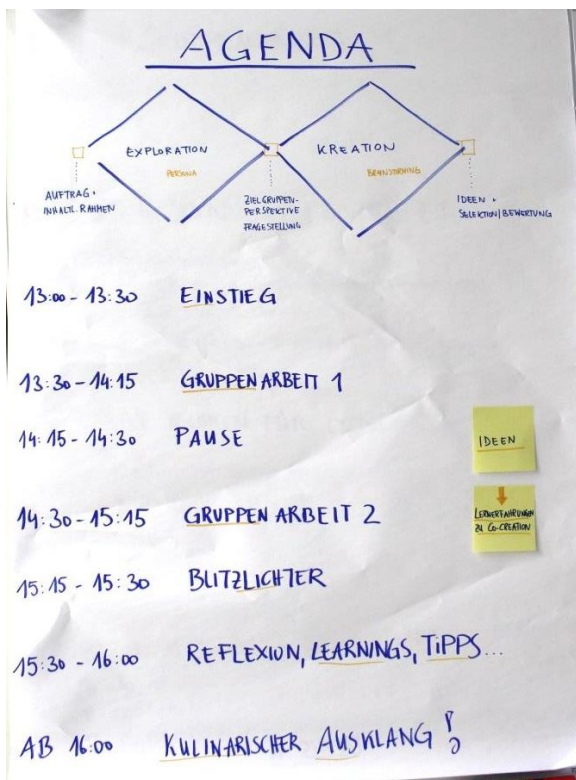 AGENDA
EXPLORATION
PERSONA
KREATION
BRAINSTORMING
AUFTRAG +
INHALTL. RAHMEN
ZIELGRUPPEN-
PERSPEKTIVE
FRAGESTELLUNG
IDEEN +
SELEKTION/BEWERTUNG
13:00 - 13:30 EINSTIEG
13:30 - 14:15 GRUPPENARBEIT 1
14:15 - 14:30 PAUSE
IDEEN
14:30 - 15:15 GRUPPENARBEIT 2
LERNERFAHRUNGEN
ZU CO-CREATION
15:15 - 15:30 BLITZLICHTER
15:30 - 16:00 REFLEXION, LEARNINGS, TIPPS...
AB 16:00 KULINARISCHER AUSKLANG !